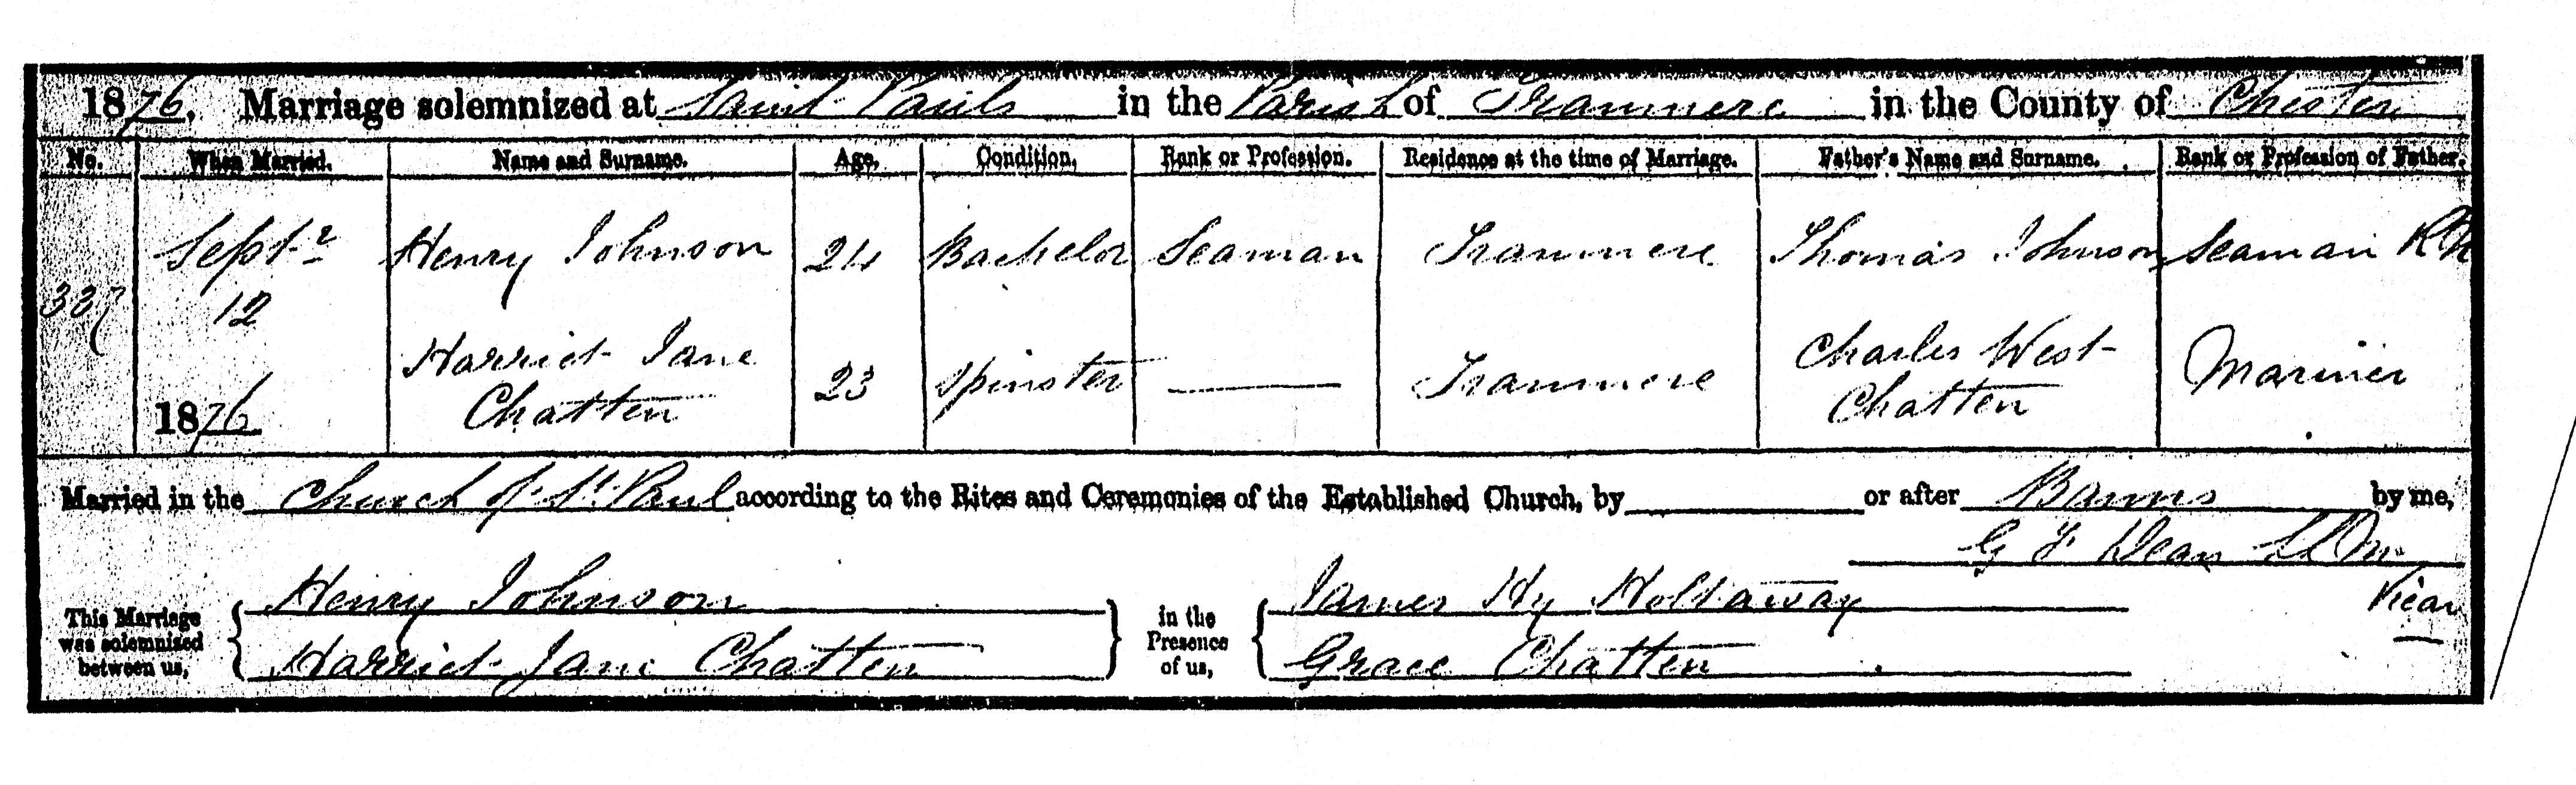 1876. Marriage solemnized at Saint Pauls in the Parish of Tranmere in the County of Chester
No. When Married. Name and Surname. Age. Condition. Rank or Profession. Residence at the time of Marriage. Father's Name and Surname. Rank or Profession of Father.
337 Septr 12 1876 Henry Johnson 24 Bachelor Seaman Tranmere Thomas Johnson Seaman RN
Harriet Jane Chatten 23 Spinster Tranmere Charles West Chatten Mariner
Married in the Church of St. Paul according to the Rites and Ceremonies of the Established Church, by or after Banns by me,
G F Dean
Vicar
This Marriage was solemnized between us, Henry Johnson in the Presence of us, James Hy Holtaway
Harriet Jane Chatten Grace Chatten